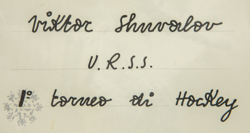 Viktor Shuvalov
U.R.S.S.
1° torneo di Hockey